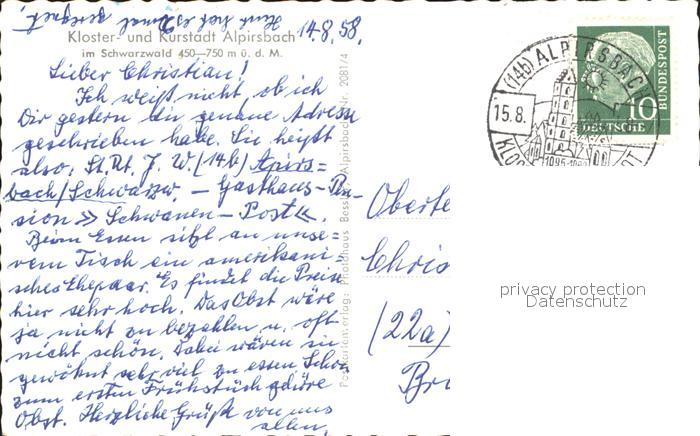 Heut hat es 2mal geregnet
Kloster- und Kurstadt Alpirsbach
im Schwarzwald 450—750 m ü. d. M.
14.8.58.
Lieber Christian!
Ich weiß nicht, ob ich
Dir gestern die genaue Adresse
geschrieben habe. Sie heißt
also: St.Rt. J. W. (14b) Alpirs=
bach/Schwarzw. – Gasthaus-Pen
sion » Schwanen – Post «.
Beim Essen sitzt an unse=
rem Tisch ein amerikani=
sches Ehepaar. Es findet die Preise
hier sehr hoch. Das Obst wäre
ja nicht zu bezahlen u. oft
nicht schön. Dabei wären sie
gewöhnt sehr viel zu essen. Schon
zum ersten Frühstück gehöre
Obst. Herzliche Grüße von uns
allen.
Postkartenverlag: Photohaus Alpirsbach Nr. 2081/4
(14b) ALPIRSBACH
15.8.
10
DEUTSCHE
BUNDESPOST
Oberte
Chris
(22a)
privacy protection
Datenschutz